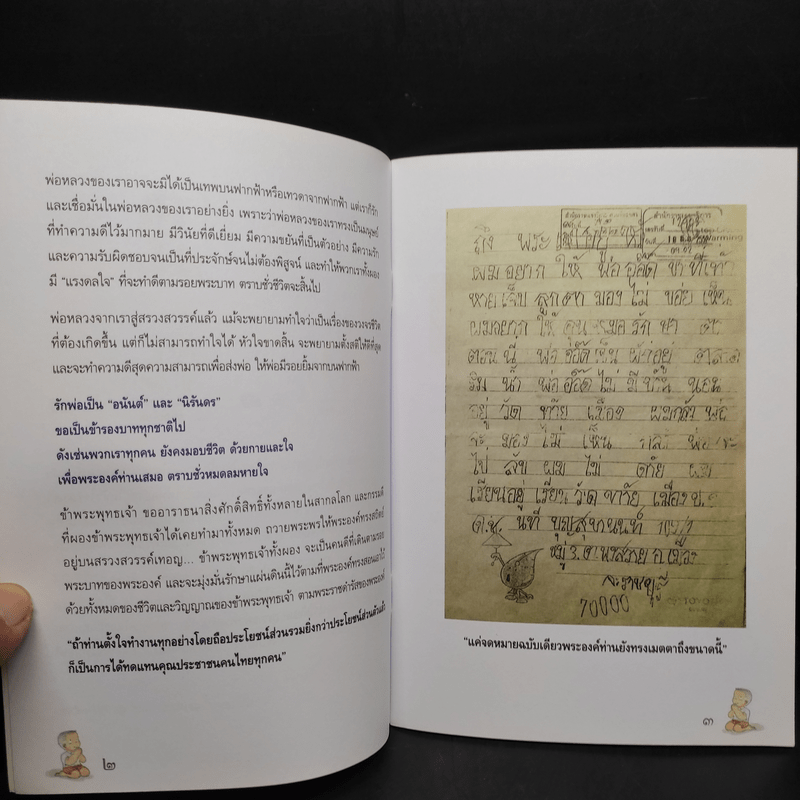 พ่อหลวงของเราอาจจะมิได้เป็นเทพบนฟากฟ้าหรือเทวดาจากฟากฟ้า แต่เราก็รัก
และเชื่อมั่นในพ่อหลวงของเราอย่างยิ่ง เพราะว่าพ่อหลวงของเราทรงเป็นมนุษย์
ที่ทำความดีไว้มากมาย มีวินัยที่ดีเยี่ยม มีความขยันที่เป็นตัวอย่าง มีความรัก
และความรับผิดชอบจนเป็นที่ประจักษ์จนไม่ต้องพิสูจน์ และทำให้พวกเราทั้งผอง
มี “แรงดลใจ” ที่จะทำดีตามรอยพระบาท ตราบชั่วชีวิตจะสิ้นไป
พ่อหลวงจากเราสู่สรวงสวรรค์แล้ว แม้จะพยายามทำใจว่าเป็นเรื่องของวงจรชีวิต
ที่ต้องเกิดขึ้น แต่ก็ไม่สามารถทำใจได้ หัวใจขาดสิ้น จะพยายามตั้งสติให้ดีที่สุด
และจะทำความดีสุดความสามารถเพื่อส่งพ่อ ให้พ่อมีรอยยิ้มจากบนฟากฟ้า
รักพ่อเป็น “อนันต์” และ “นิรันดร”
ขอเป็นข้ารองบาททุกชาติไป
ดังเช่นพวกเราทุกคน ยังคงมอบชีวิต ด้วยกายและใจ
เพื่อพระองค์ท่านเสมอ ตราบชั่วหมดลมหายใจ
ข้าพระพุทธเจ้า ขออาราธนาสิ่งศักดิ์สิทธิ์ทั้งหลายในสากลโลก และกรรมดี
ที่ผองข้าพระพุทธเจ้าได้เคยทำมาทั้งหมด ถวายพระพรให้พระองค์ทรงสถิตย์
อยู่บนสรวงสวรรค์เทอญ... ข้าพระพุทธเจ้าทั้งผอง จะเป็นคนดีที่เดินตามรอย
พระบาทของพระองค์ และจะมุ่งมั่นรักษาแผ่นดินนี้ไว้ตามที่พระองค์ทรงสอนเอาไว้
ด้วยทั้งหมดของชีวิตและวิญญาณของข้าพระพุทธเจ้า ตามพระราชดำรัสของพระองค์
“ถ้าท่านตั้งใจทำงานทุกอย่างโดยถือประโยชน์ส่วนรวมยิ่งกว่าประโยชน์ส่วนตัวแล้ว
ก็เป็นการได้ทดแทนคุณประชาชนคนไทยทุกคน”
๒
ถึง พระ
ผมอยาก ให้ พ่อ อ๊อด ขา ที่เท้า
หายเจ็บ ลูกตา มอง ไม่ ค่อย เห็น
ผมอยาก ให้ คุณ หมอ รักษา
ตอน นี้ พ่อ อ๊อด เป็น พักอยู่ ศาลา
ริม น้ำ พ่อ อ๊อด ไม่ มี บ้าน นอน
อยู่ วัด ท้าย เมือง ผมกลัว พ่อ
จะ มอง ไม่ เห็น กลัว พ่อ จะ
ไป ลับ ผม ไม่ ตาย ผม
เรียนอยู่ เรียน วัด ท้าย เมือง ป.
ด.ช. นที บุญสุขนนท์ 109/1
หมู่ 3 ต. บางสวย อ. เมือง
จ.
70000
“แค่จดหมายฉบับเดียวพระองค์ท่านยังทรงเมตตาถึงขนาดนี้”
๓